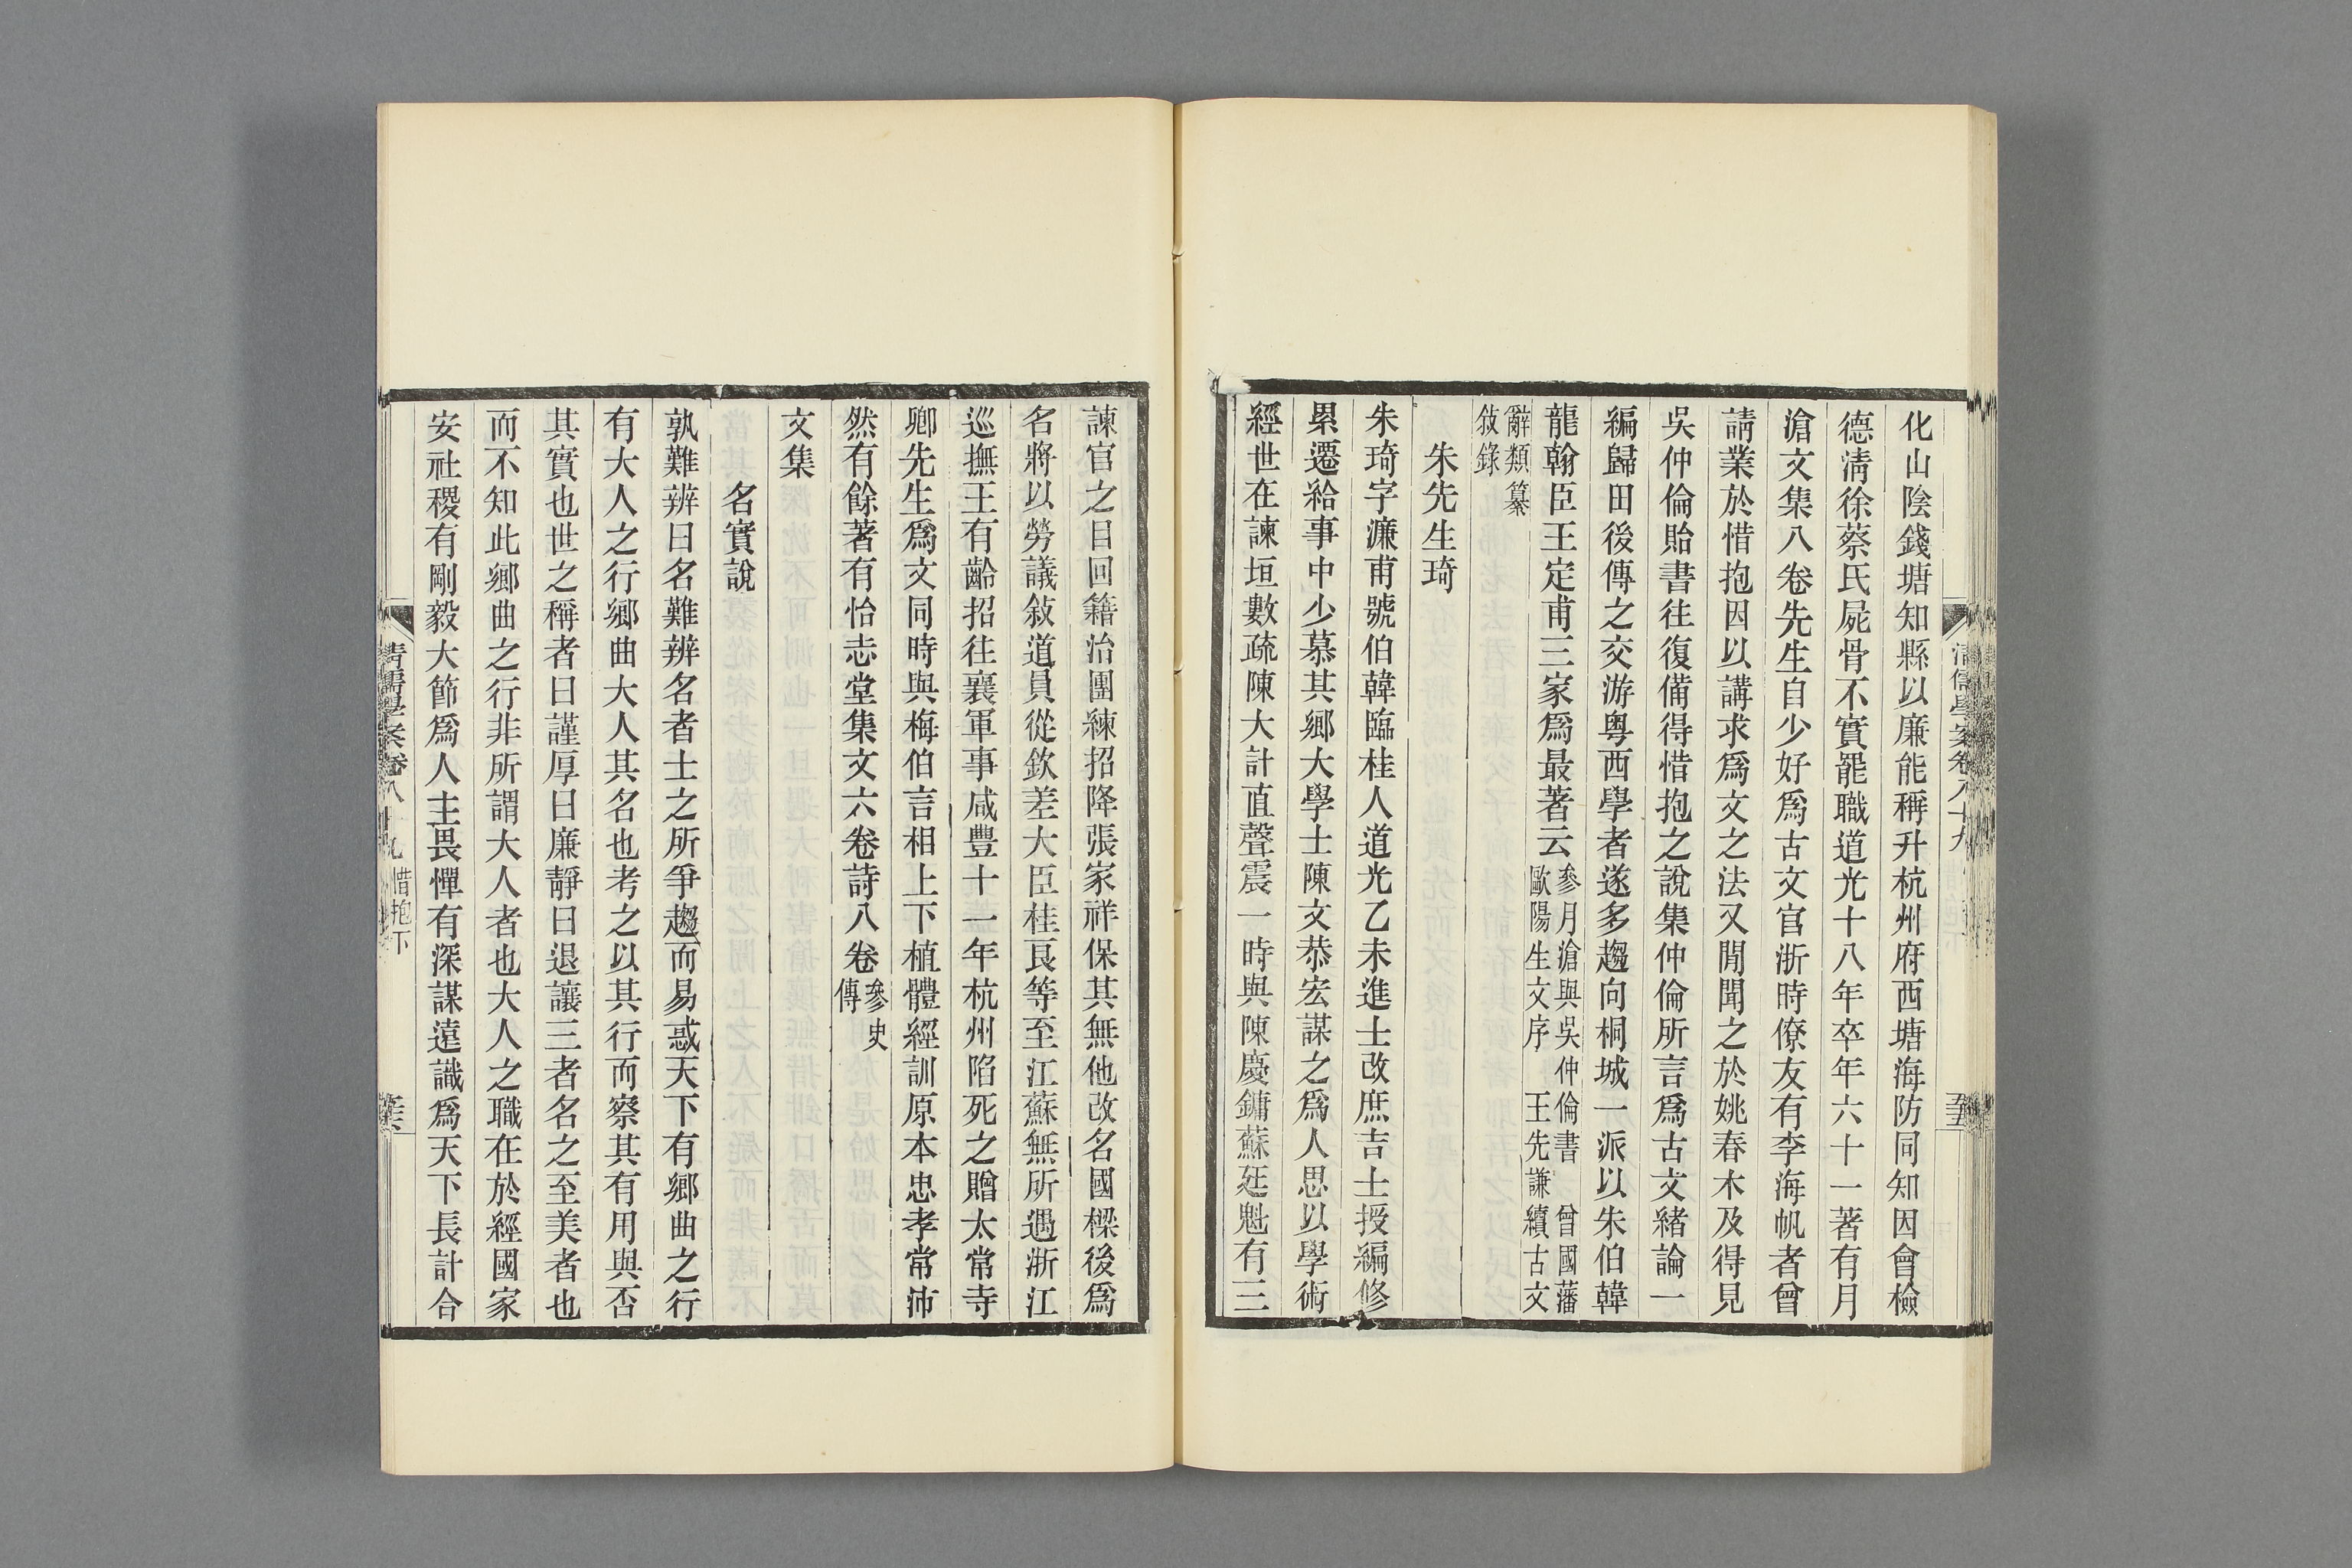 化山陰錢塘知縣以廉能稱升杭州府西塘海防同知因會檢
德淸徐蔡氏屍骨不實罷職道光十八年卒年六十一著有月
滄文集八卷先生自少好爲古文官浙時僚友有李海帆者曾
請業於惜抱因以講求爲文之法又閒聞之於姚春木及得見
吳仲倫貽書往復備得惜抱之說集仲倫所言爲古文緖論一
編歸田後傳之交游粤西學者遂多趨向桐城一派以朱伯韓
龍翰臣王定甫三家爲最著云參月滄與吳仲倫書 曾國藩
歐陽生文序 王先謙續古文
辭類纂
敍錄
朱先生琦
朱琦字濂甫號伯韓臨桂人道光乙未進士改庶吉士授編修
累遷給事中少慕其鄉大學士陳文恭宏謀之爲人思以學術
經世在諫垣數疏陳大計直聲震一時與陳慶鏞蘇廷魁有三
諫官之目回籍治團練招降張家祥保其無他改名國樑後爲
名將以勞議敍道員從欽差大臣桂良等至江蘇無所遇浙江
巡撫王有齡招往襄軍事咸豐十一年杭州陷死之贈太常寺
卿先生爲文同時與梅伯言相上下植體經訓原本忠孝常沛
然有餘著有怡志堂集文六卷詩八卷參史
傳
文集
名實說
孰難辨曰名難辨名者士之所爭趨而易惑天下有鄉曲之行
有大人之行鄉曲大人其名也考之以其行而察其有用與否
其實也世之稱者曰謹厚曰廉靜曰退讓三者名之至美者也
而不知此鄉曲之行非所謂大人者也大人之職在於經國家
安社稷有剛毅大節爲人主畏憚有深謀遠識爲天下長計合
淸儒學案卷八十九 惜抱下